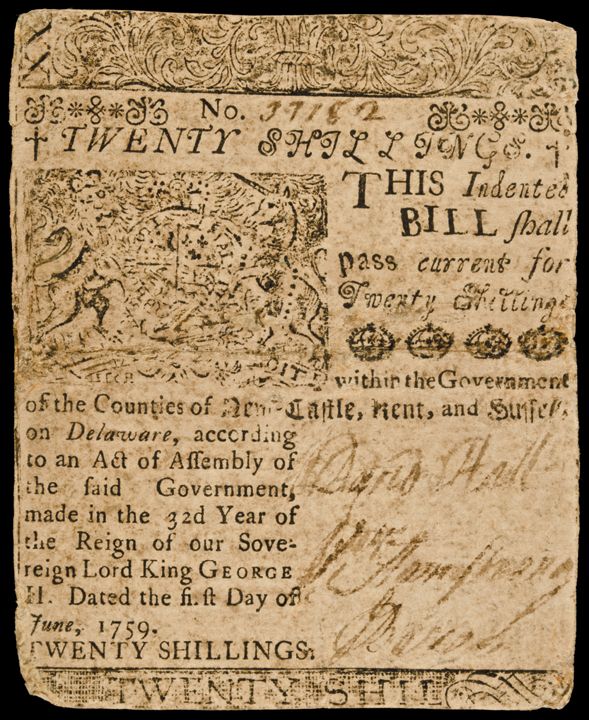 XX
No. 37182
TWENTY SHILLINGS.
THIS Indented
BILL ſhall
paſs current for
Twenty Shillings
within the Government
of the Counties of New-Caſtle, Kent, and Suſſex,
on Delaware, according
to an Act of Aſſembly of
the ſaid Government,
made in the 32d Year of
the Reign of our Sove-
reign Lord King GEORGE
II. Dated the firſt Day of
June, 1759.
TWENTY SHILLINGS.
David Hall
Armstrong
TWENTY SHIL